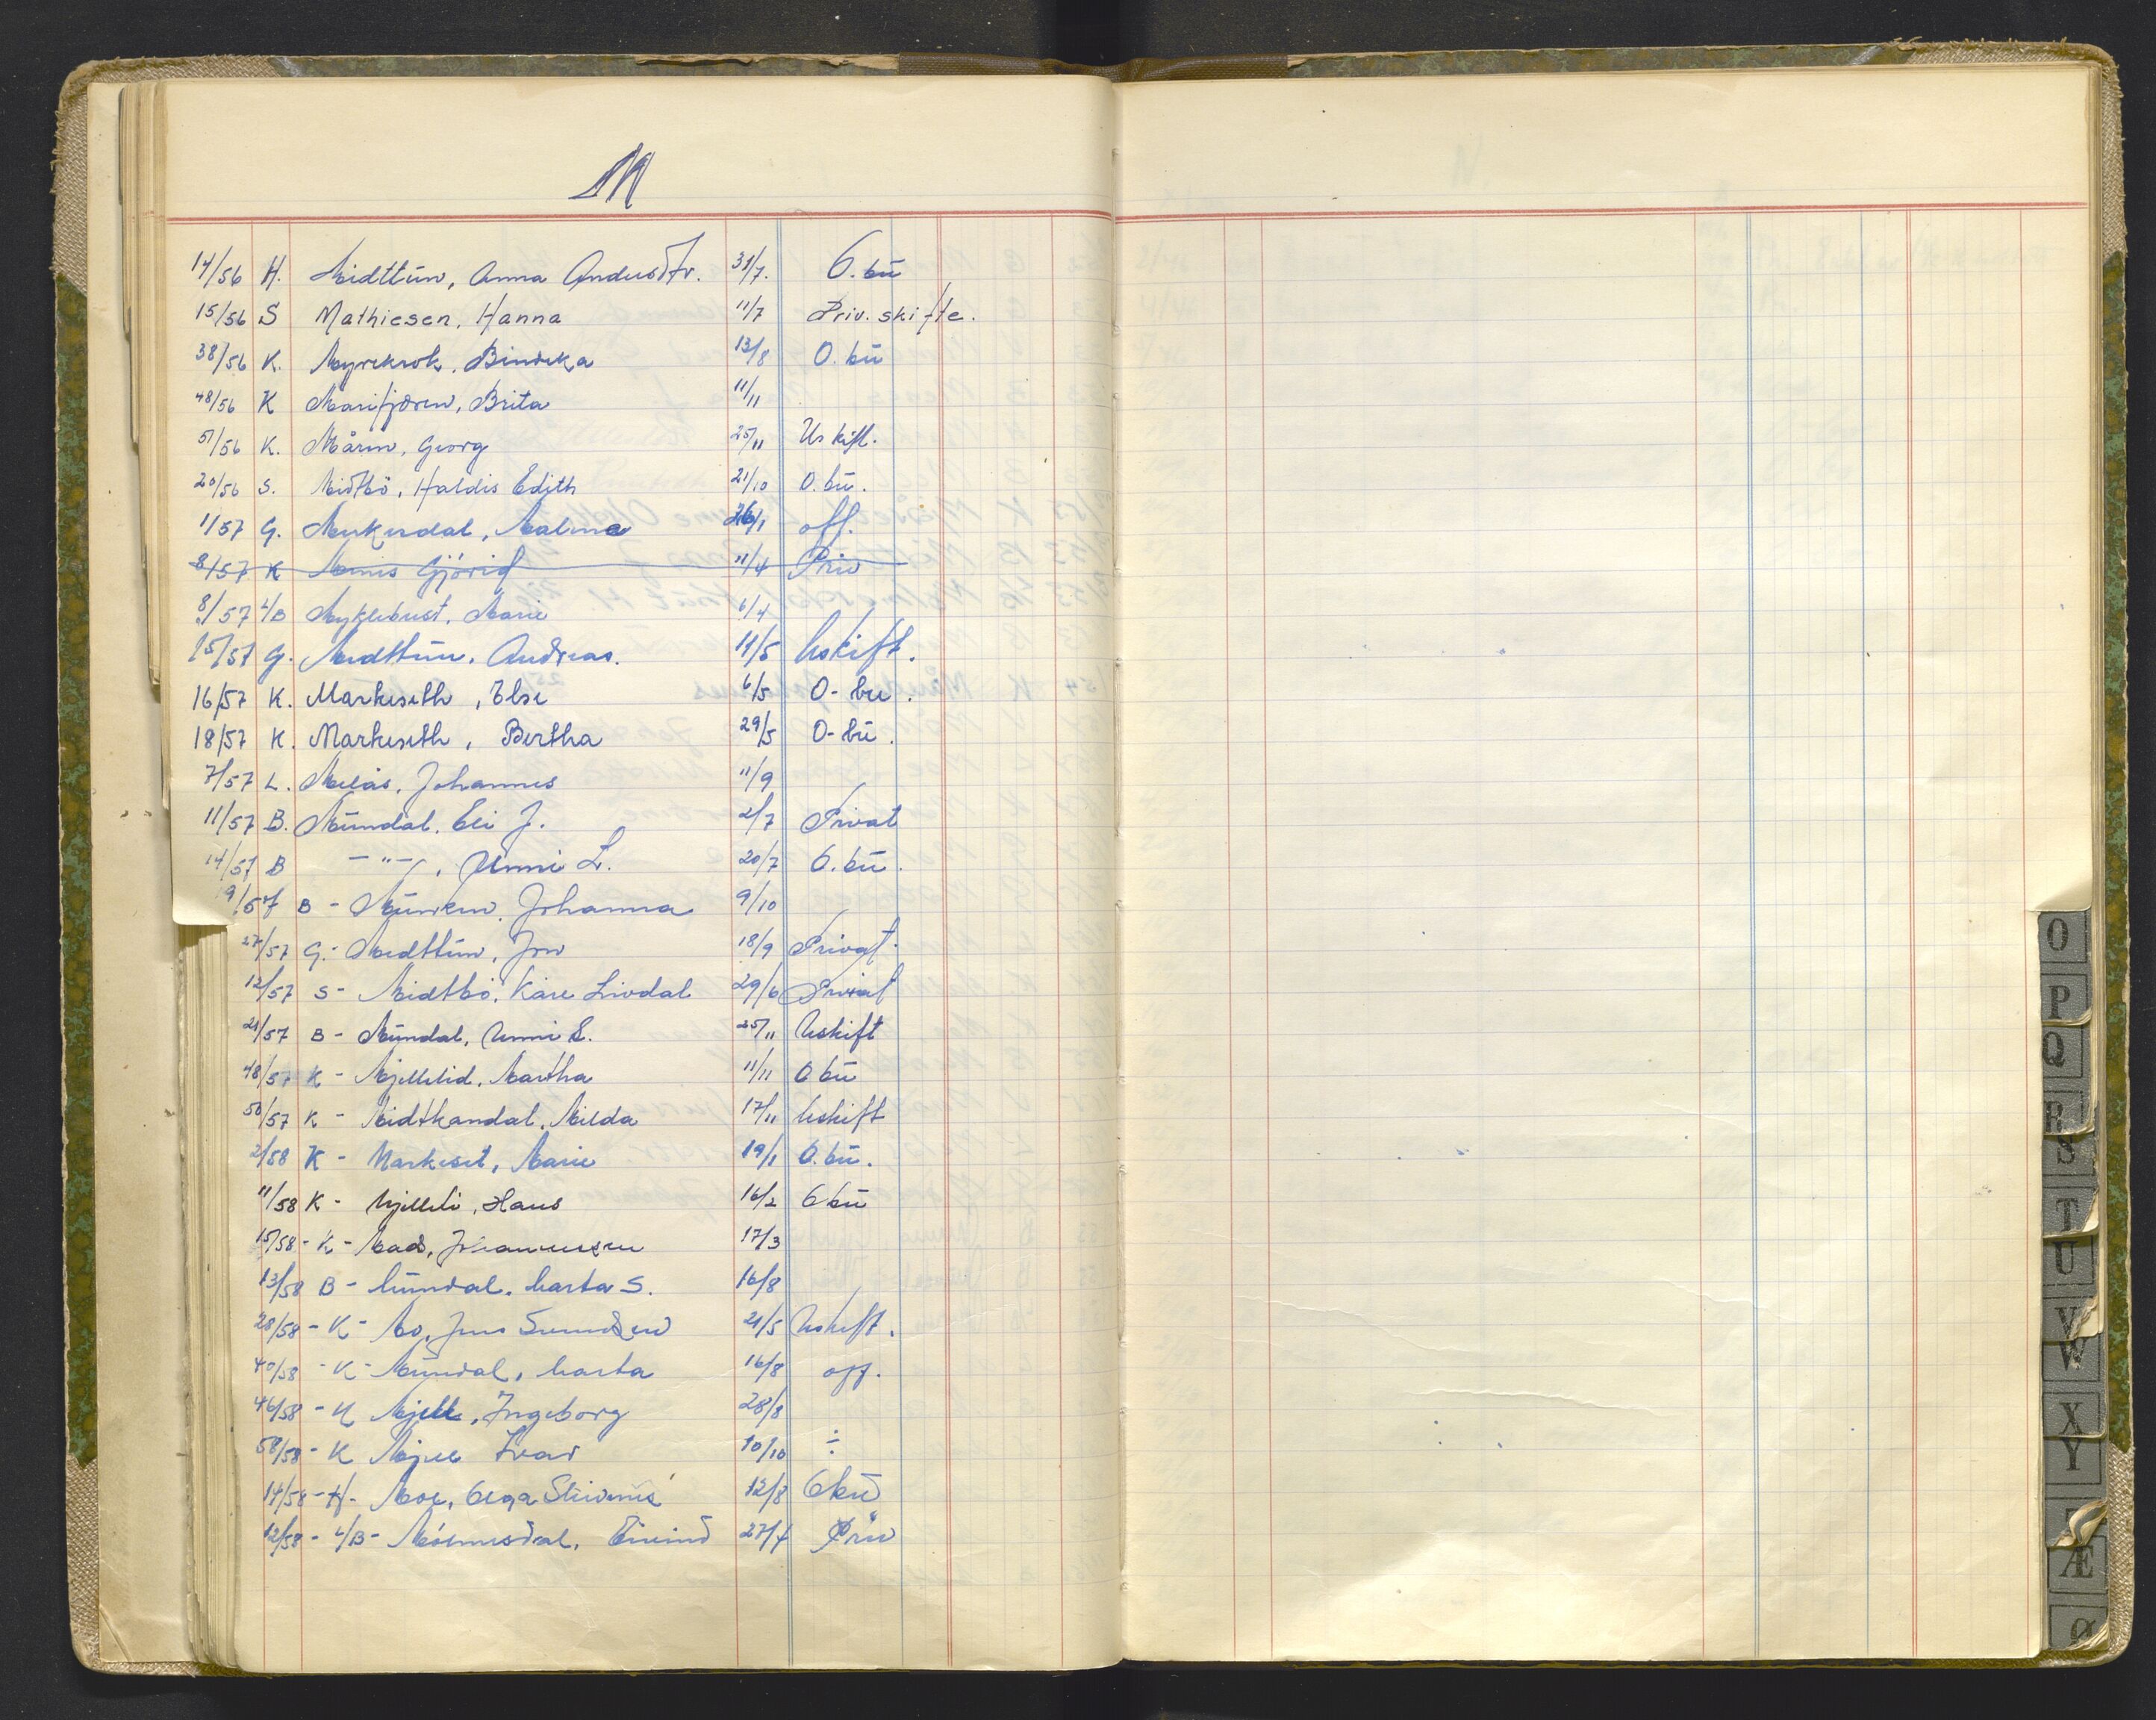 M
14/56 H. Midttün, Anna Andersdtr. 31/7. O. bü
15/56 S Mathiesen, Hanna 11/7 Priv. skifte.
38/56 K. Myrekrok, Bindika 13/8 O. bü
48/56 K Marifjøren, Brita 11/11
51/56 K. Måren, Georg 25/11 Uskift.
20/56 S. Midtbö, Haldis Edith 21/10 O. bü.
1/57 G. Myklesdal, Malene 26/1 off.
8/57 K Gjörid 11/4 Priv
8/57 L/B Myklebust, Marie 6/4
15/57 G. Midttün, Andreas. 11/5 Uskift.
16/57 K. Markeseth, Else 6/5 O-bu.
18/57 K. Markeseth, Bertha 29/5 O-bü.
7/57 L. Melås, Johannes 11/9
11/57 B. Mündal, Eli J. 2/7 Privat
14/57 B - " -, Unni L. 20/7 O. bü.
9/57 B - Münken, Johanna 9/10
27/57 G. - Midttün, Jon 18/9 Privat.
12/57 S - Midtbö, Kåre Livdal 29/6 Privat
21/57 B - Mündal, Unni L. 25/11 Uskift
48/57 K - Mjellelid, Martha 11/11 O bü
50/57 K - Midtkandal, Milda 17/11 Uskift
2/58 K - Markeset, Marie 19/1 O. bü.
11/58 K - Mjelleli, Hans 16/2 O bü
15/58 - K - Mads, Johannessen 17/3
13/58 B - Mündal, Marta S. 16/8
28/58 - K - Mo, Jens Svendsen 21/5 Uskift.
40/58 - K - Mündal, Marta 16/8 off.
46/58 - K Mjell, Ingeborg 28/8
58/58 - K Mjell Ivar 10/10 ÷
14/58 - H - Moe, Olga 12/8 Obü
12/58 - L/B - Mólmesdal, Eivind 27/4 Priv
O
P
Q
R
S
T
U
V
W
X
Y
Æ
Ø